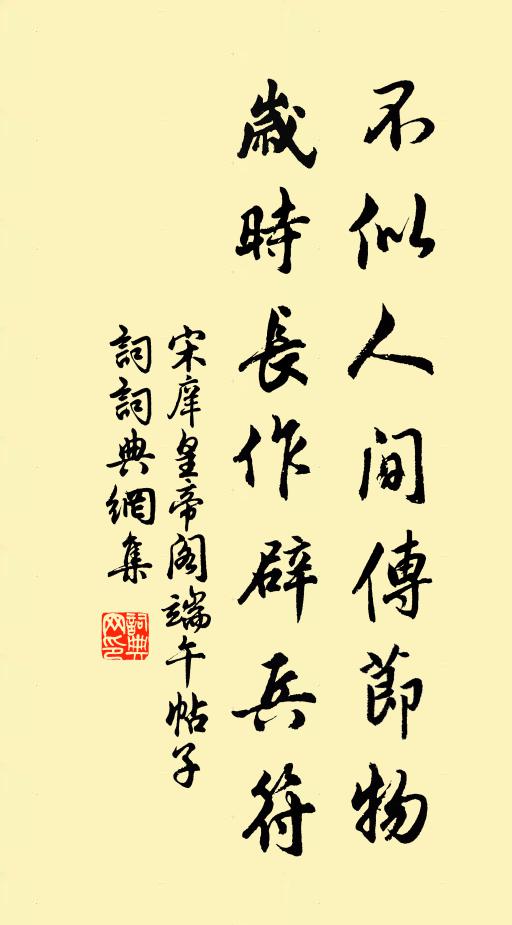 不似人间傳節物
歲時長作辟兵符
宋庠皇帝阁端午帖子
詞詞典網集
詞典
网印